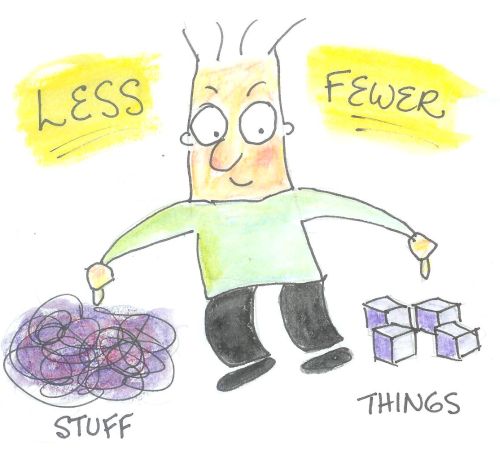 LESS
FEWER
STUFF
THINGS